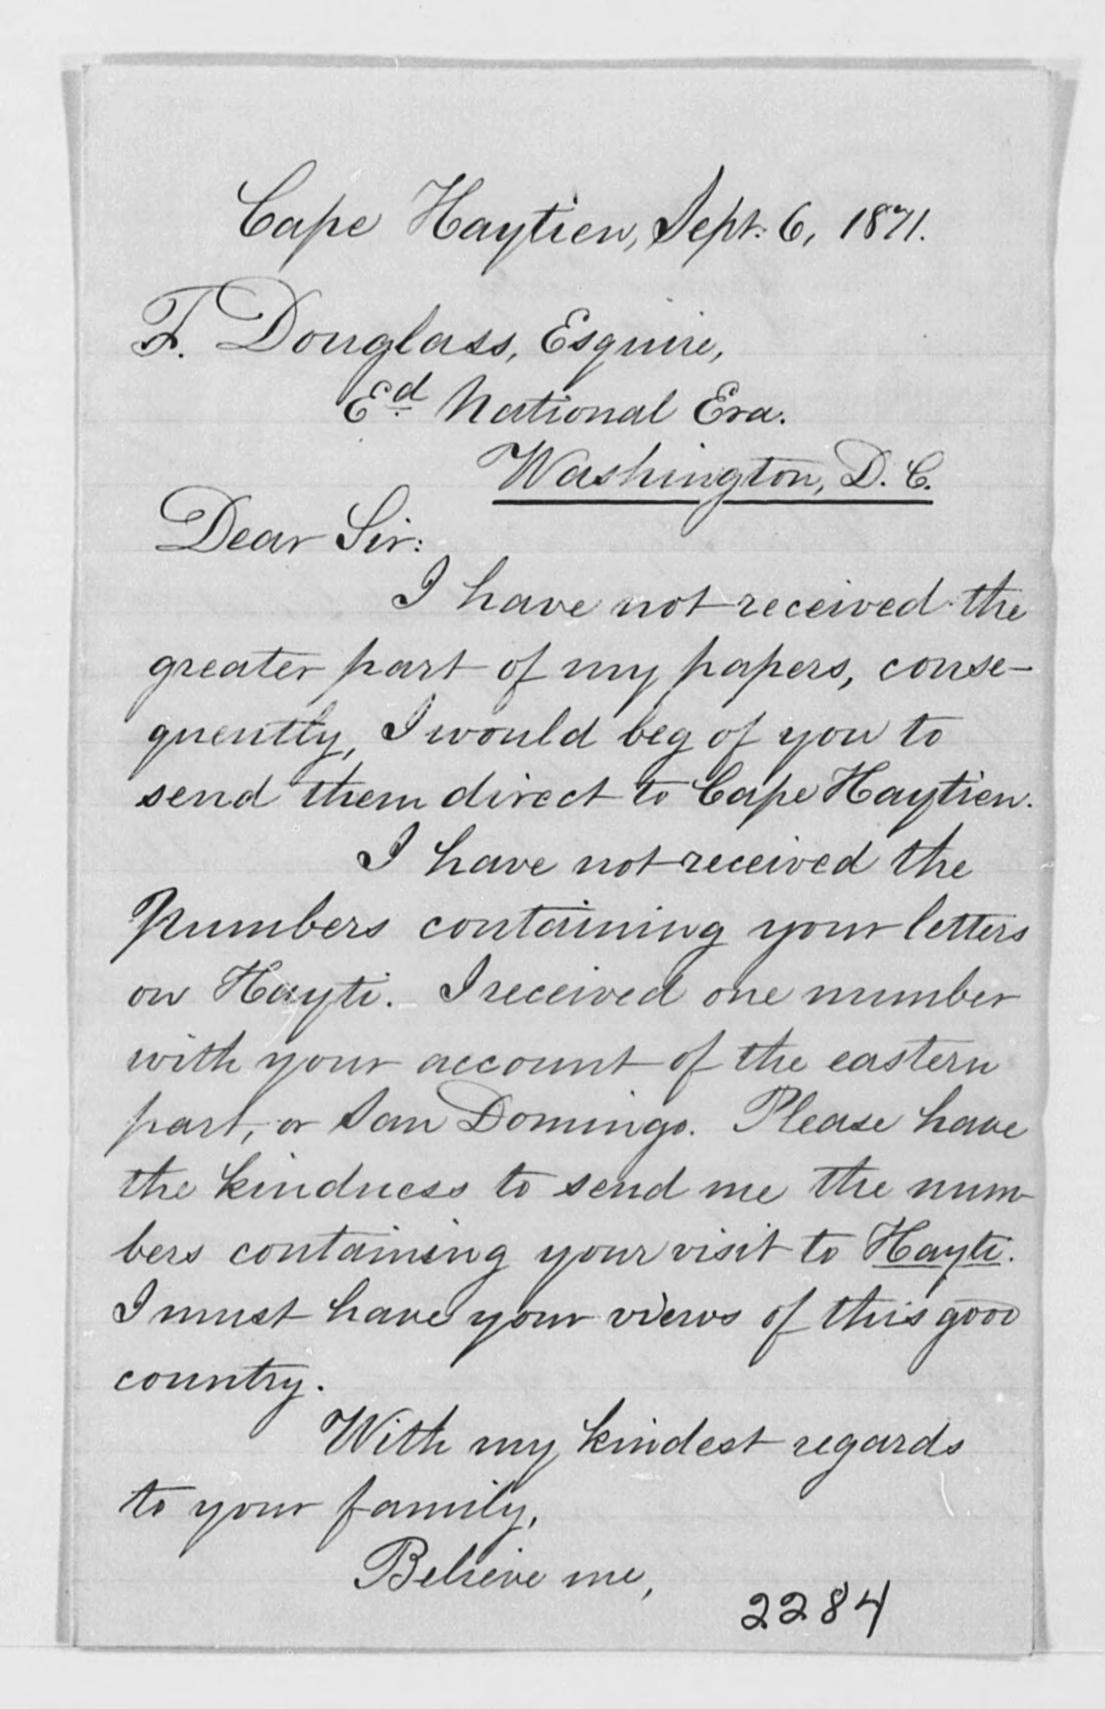 Cape Haytien, Sept. 6, 1871.
F. Douglass, Esquire,
Ed National Era.
Washington, D. C.
Dear Sir:
I have not received the
greater part of my papers, conse-
quently, I would beg of you to
send them direct to Cape Haytien.
I have not received the
Numbers containing your letters
on Hayti. I received one number
with your account of the eastern
part, or San Domingo. Please have
the kindness to send me the num-
bers containing your visit to Hayti.
I must have your views of this good
country.
With my kindest regards
to your family,
Believe me,
2284